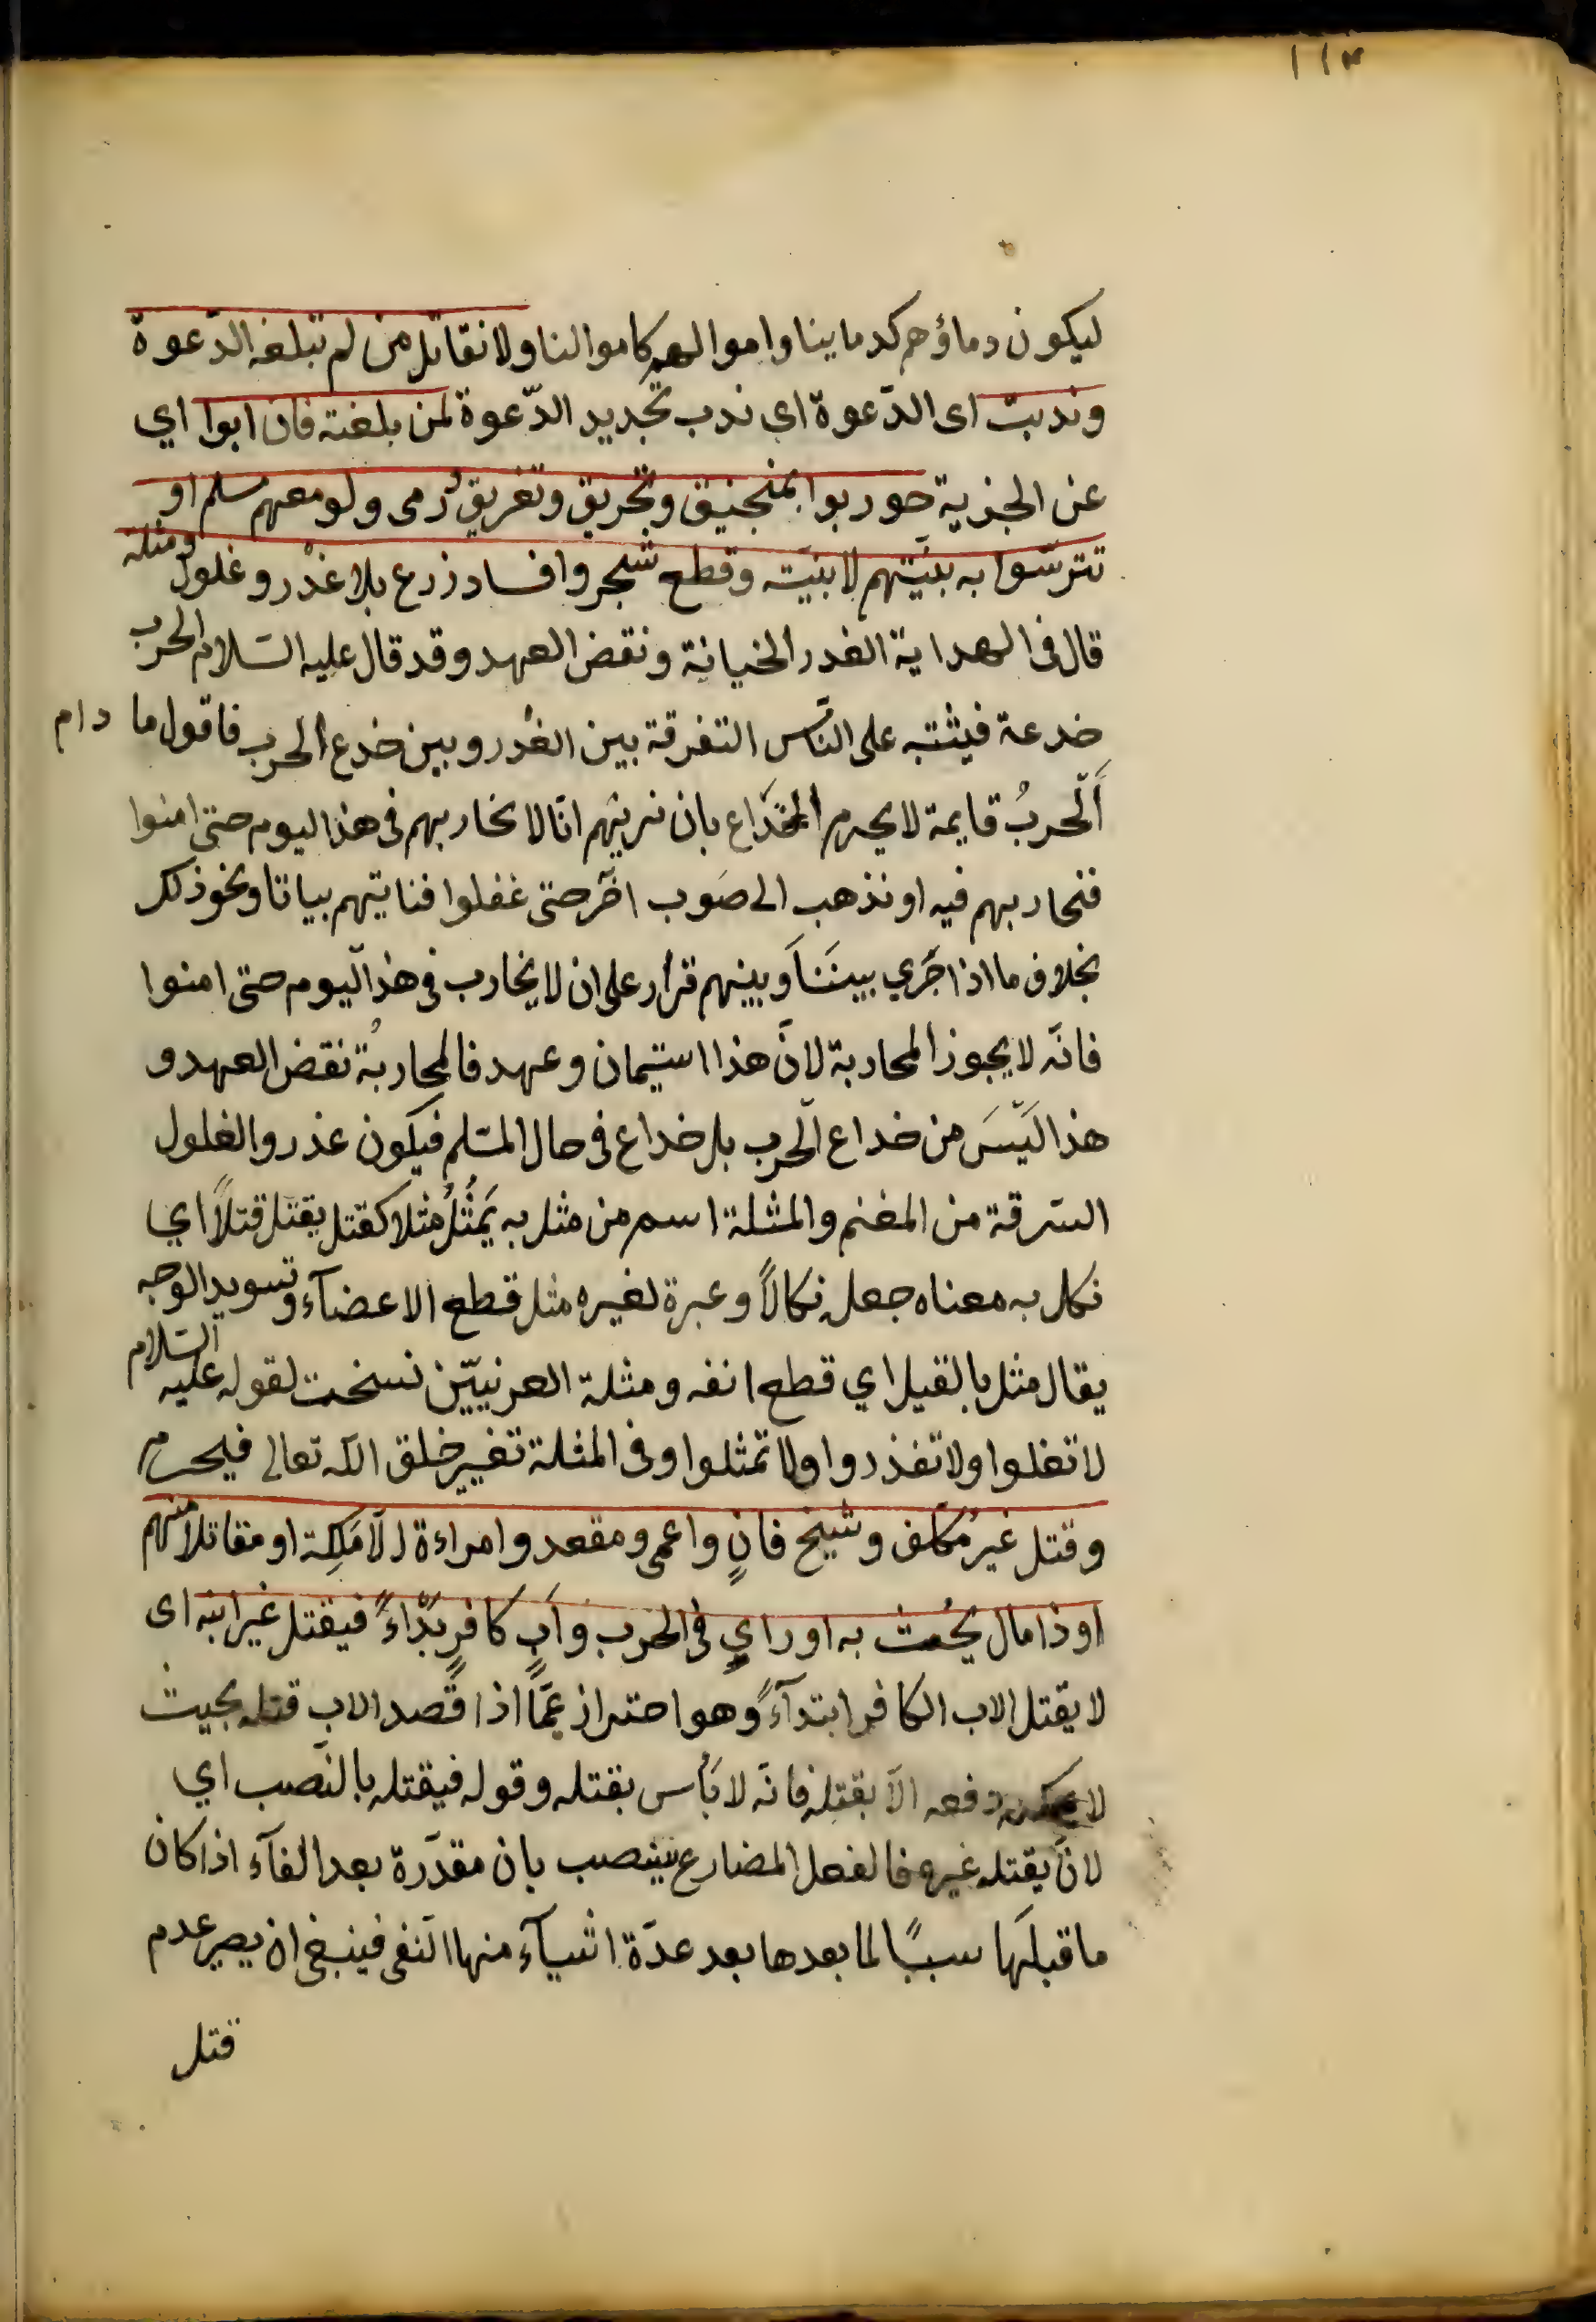 ١١٣
ليكون دماؤهم كدماينا واموالهم كاموالنا ولا نقاتل من لم تبلغه الدّعوة
وندبت اى الدّعوة اي ندب تجديد الدّعوة لمن بلغته فان ابوا اي
عن الجزية حوربوا بمنجنيق وتحريق وتغريق ورمى ولو معهم مسلم او
تترّسوا به بنيّتهم لا بنيّته وقطع شجر وافساد زرع بلا غدْر وغلول ومثلة
قال فى الهداية الغدر الخيانة ونقض العهد وقد قال عليه السّلام الحرب
خدعة فيشتبه على النّاس التفرقة بين الغدر وبين خدع الحرب فاقول ما دام
الحربُ قايمة لا يحرم الخداع بان نريهم انّا لا نحاربهم فى هذا اليوم حتى امنوا
فنحاربهم فيه او نذهب الى صَوب اخر حتى غفلوا فناتيهم بياتا ونحو ذلك
بخلاف ما اذا جَري بينَنَا وبينهم قرار على ان لا يحارب فى هذا اليوم حتى امنوا
فانّه لا يجوز المحاربة لانّ هذا استيمان وعهد فالمحاربُة نقض العهد و
هذا ليْسَ من خداع الحرب بل خداع فى حال المسّلم فيكون عذر والغلول
السّرقة من المغنم والمثلة اسم من مثل به يَمثُلُ مثلا كقتل يقتل قتلاً اي
نكل به معناه جعله نكالاً وعبرة لغيره مثل قطع الاعضآء وتسويد الوجه
يقال مثل بالقيل اي قطع انفه ومثلة العرنييّن نسخت لقوله عليه السّلام
لا تغلوا ولا تغذروا ولا تمثلوا وفى المثلة تغيير خلق الله تعالى فيحرم
وقتل غير مُكلّف وشيخ فانٍ واعمى ومقعد وامراءة الّا مَلِكة او مقاتلا منهم
او ذا مال يحُثّ به او راي فى الحرب وابٍ كافرٍ بَدْاءً فيقتل غير ابنه اى
لا يقتل الاب الكافر ابتدآءً وهو احتراز عمّا اذا قصد الاب قتله بحيث
لا يمكن دفعه الّا بقتله فانّه لا بَأس بقتله وقوله فيقتله بالنّصب اي
لانّ يقتله غيره فالفعل المضارع ينصب بان مقدّرة بعد الفآء اذا كان
ما قبلَها سببًا لما بعدها بعد عدّة اشيآء منها النّفى فينبغى ان يصير عدم
قتل